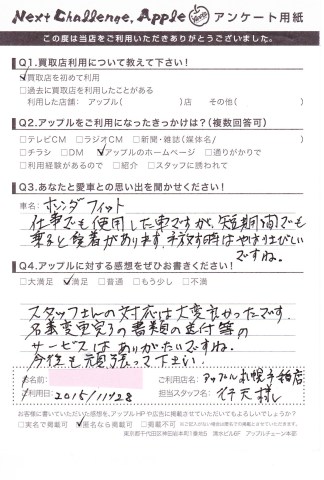 Next Challenge, Apple アンケート用紙
この度は当店をご利用いただきありがとうございました。
Q1.買取店利用について教えて下さい!
☑買取店を初めて利用
□過去に買取店を利用したことがある
利用した店舗: アップル( )店 その他( )
Q2.アップルをご利用になったきっかけは?(複数回答可)
□テレビCM □ラジオCM □新聞・雑誌(媒体名/ )
□チラシ □DM ☑アップルのホームページ □通りがかりで
□利用経験があるので □紹介 □スタッフに誘われて
Q3.あなたと愛車との思い出を聞かせください!
車名: ホンダフィット
仕事でも使用した車ですが、短期間でも
乗ると愛着があります。手放す時はやはり淋しい
ですね。
Q4.アップルに対する感想をぜひお書きください!
□大満足 ☑満足 □普通 □もう少し □不満
スタッフさんの対応は大変よかったです。
名義変更完了の書類の送付等の
サービスはありがたいですね。
今後も頑張って下さい。
お名前: ご利用店名: アップル札幌手稲店
ご利用日: 2015/11/28 担当スタッフ名: 行天様
お客様に書いていただいた感想を、アップルHPや広告に掲載させていただいてもよろしいでしょうか?
□実名で掲載可 ☑匿名なら掲載可 □掲載不可